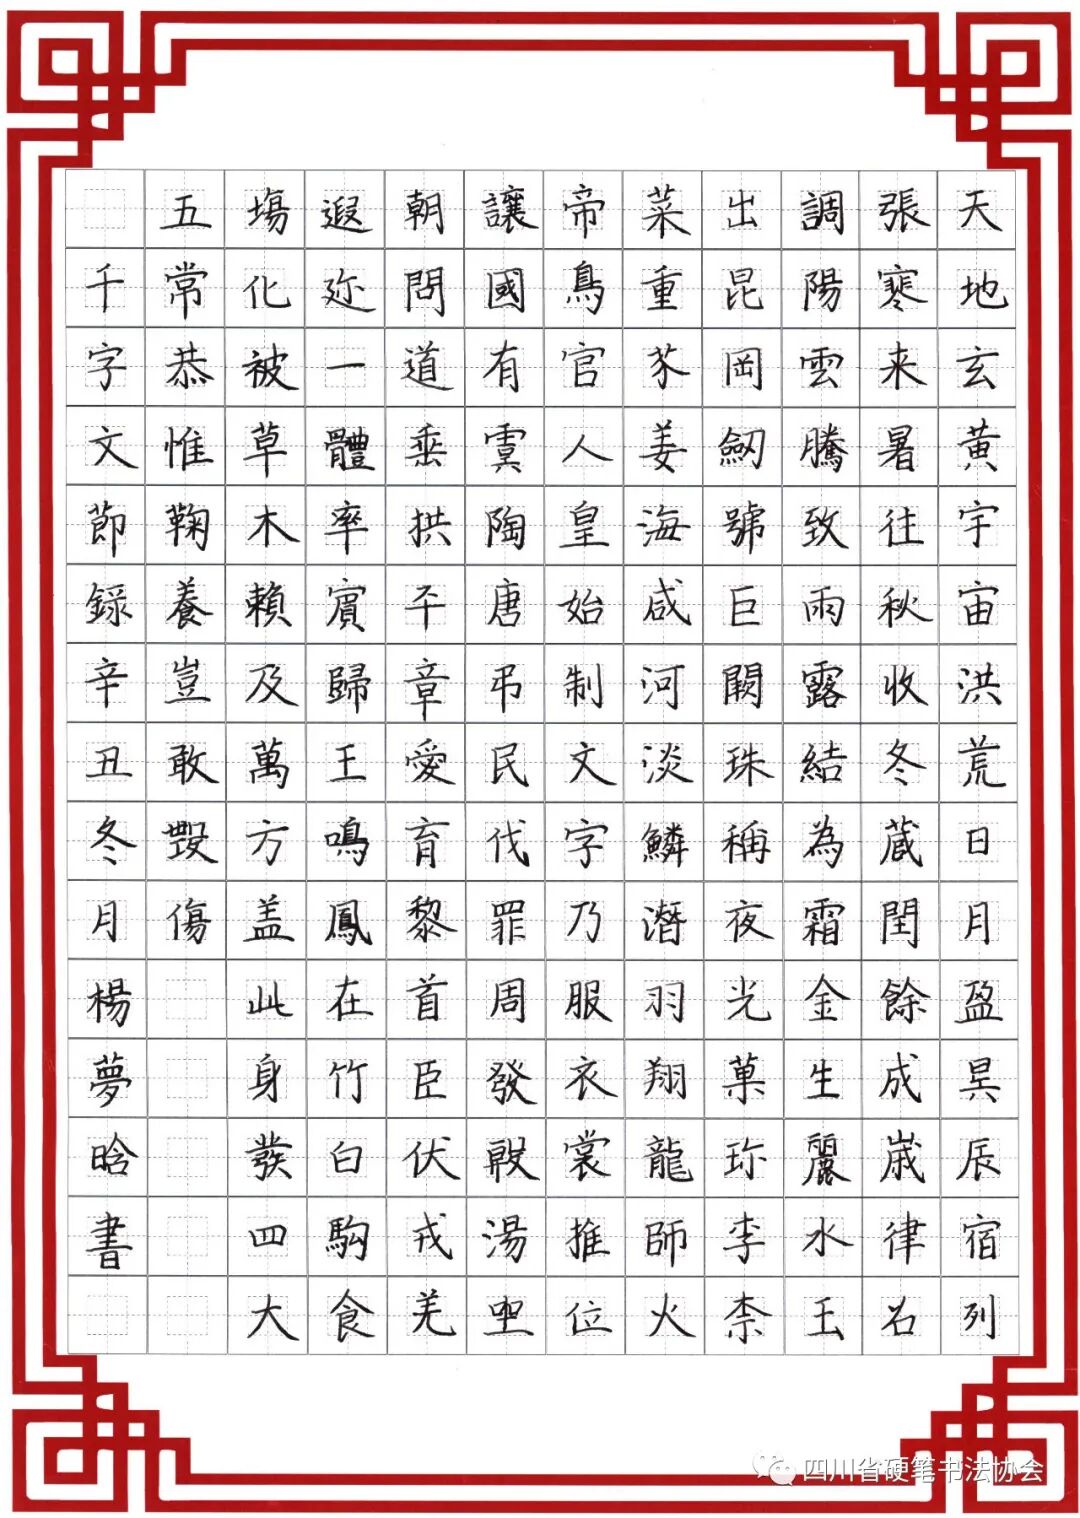 天地玄黃宇宙洪荒日月盈昃辰宿列
張寒来暑往秋收冬蔵閏餘成嵗律召
調陽雲騰致雨露結為霜金生麗水玉
出昆岡劒號巨闕珠稱夜光菓珎李柰
菜重芥姜海咸河淡鱗潛羽翔龍師火
帝鳥官人皇始制文字乃服衣裳推位
讓國有虞陶唐弔民伐罪周發殷湯坐
朝問道垂拱平章愛育黎首臣伏戎羌
遐迩一體率賓歸王鳴鳳在竹白駒食
塲化被草木賴及萬方盖此身髮四大
五常恭惟鞠養豈敢毀傷
千字文節錄辛丑冬月楊夢晗書
四川省硬笔书法协会